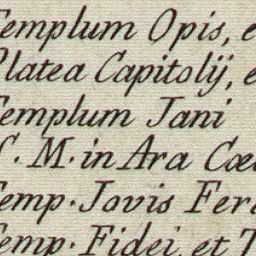 Templum Opis, e
Platea Capitolij, e
Templum Jani
S. M. in Ara Cœ
Temp. Jovis Fer
Temp. Fidei, et T